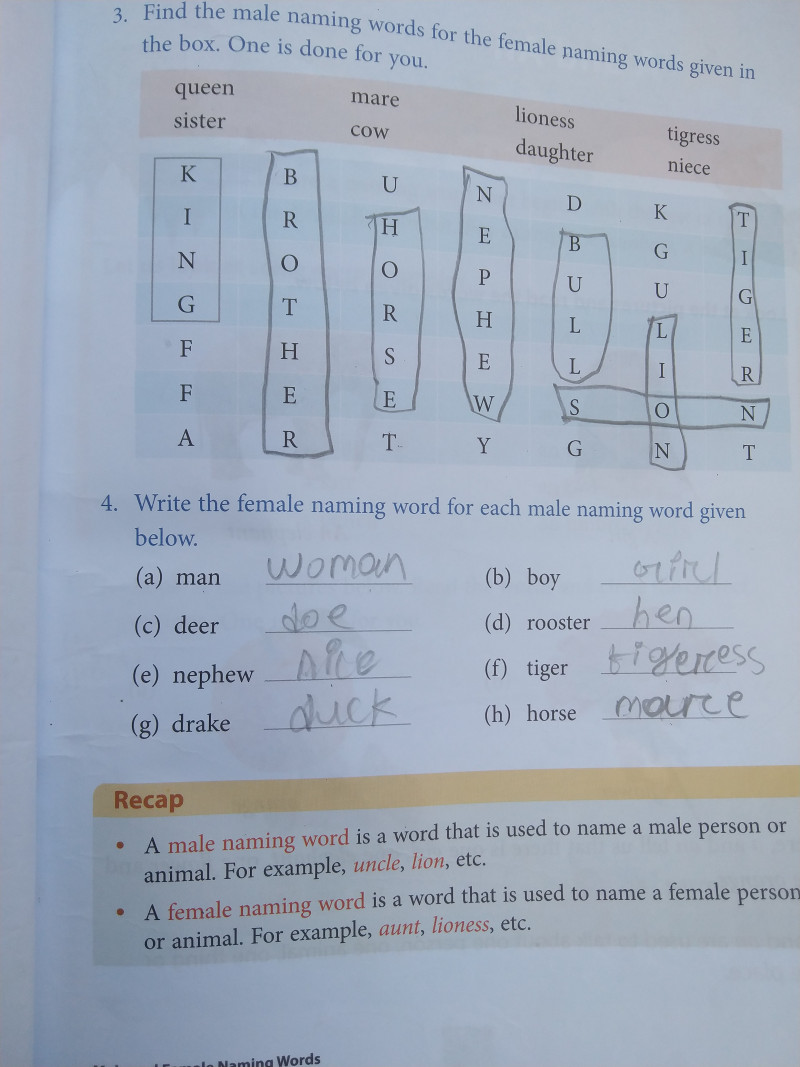 3. Find the male naming words for the female naming words given in
the box. One is done for you.
queen mare lioness tigress
sister cow daughter niece
K B U N D K T
I R H E B G I
N O O P U U G
G T R H L L E
F H S E L I R
F E E W S O N
A R T Y G N T
4. Write the female naming word for each male naming word given
below.
(a) man woman (b) boy girl
(c) deer doe (d) rooster hen
(e) nephew nice (f) tiger tigercess
(g) drake duck (h) horse mource
Recap
• A male naming word is a word that is used to name a male person or
animal. For example, uncle, lion, etc.
• A female naming word is a word that is used to name a female person
or animal. For example, aunt, lioness, etc.
Naming Words